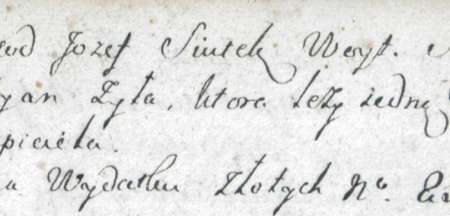 Jozef Siutek Woyt.
Zyła, ktora leży iedną
piciela.
Wydatku Złotych No.